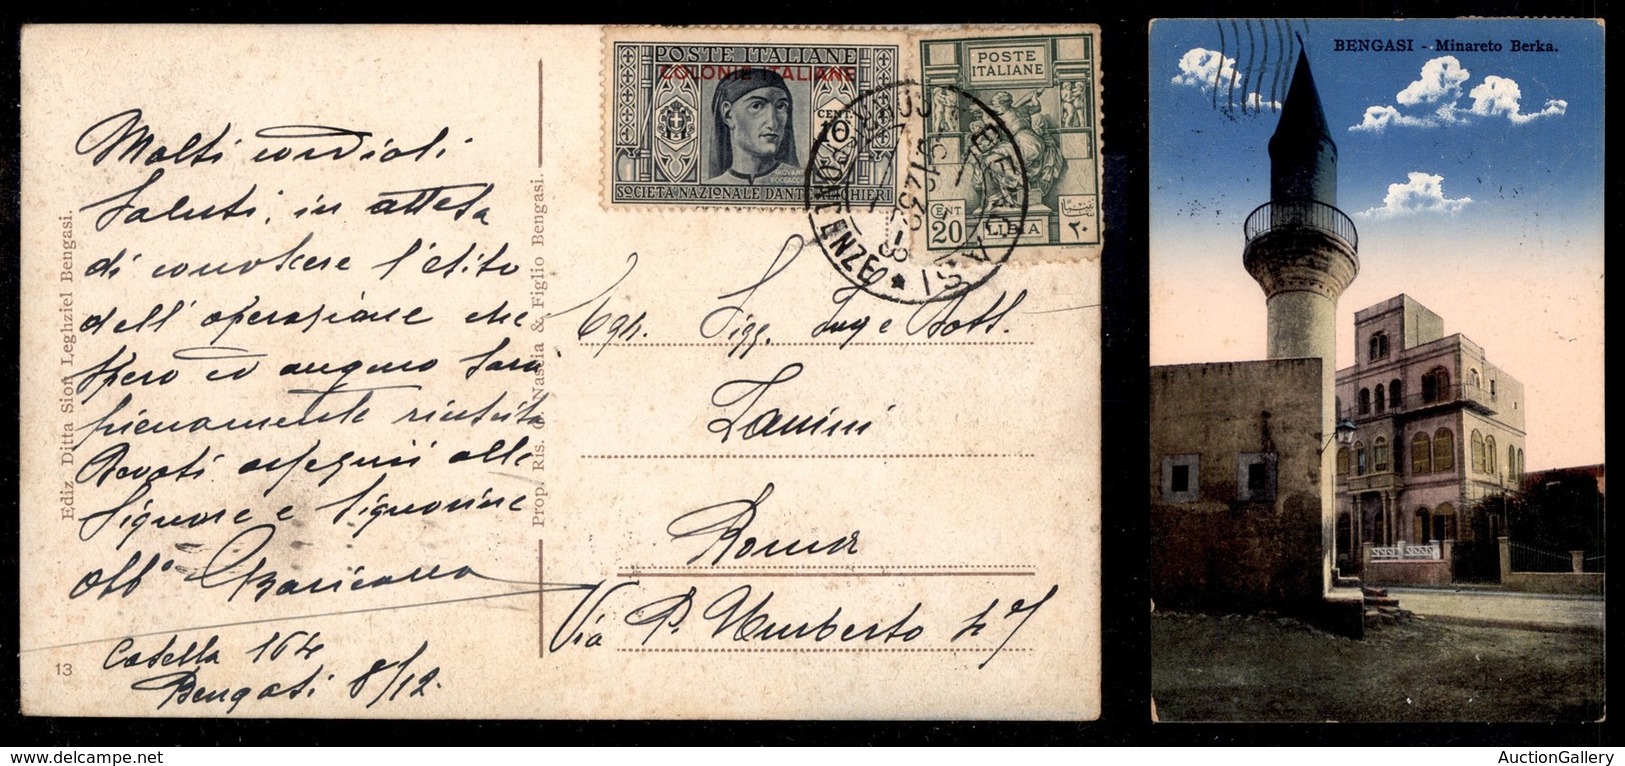 Molti cordiali
Saluti, in attesa
di conoscere l'esito
dell' operazione che
spero ed auguro sarà
pienamente riuscita
Devoti ossequii alle
Signore e Signorine
Obb°
Casella 164
Bengasi 8/12.
Ediz. Ditta Sion Leghziel Bengasi.
13
Prop. Ris. & Figlio Bengasi.
POSTE ITALIANE
COLONIE ITALIANE
CENT
10
GIOVANNI
BOCCACCIO
SOCIETÀ NAZIONALE DANTE ALIGHIERI
POSTE
ITALIANE
CENT
20
LIBIA
٢٠
BENGASI
CORRISPONDENZE
Egr. Sigg. Ing e Dott.
Zanini
Roma
Via P. Umberto
BENGASI - Minareto Berka.
AuctionGallery